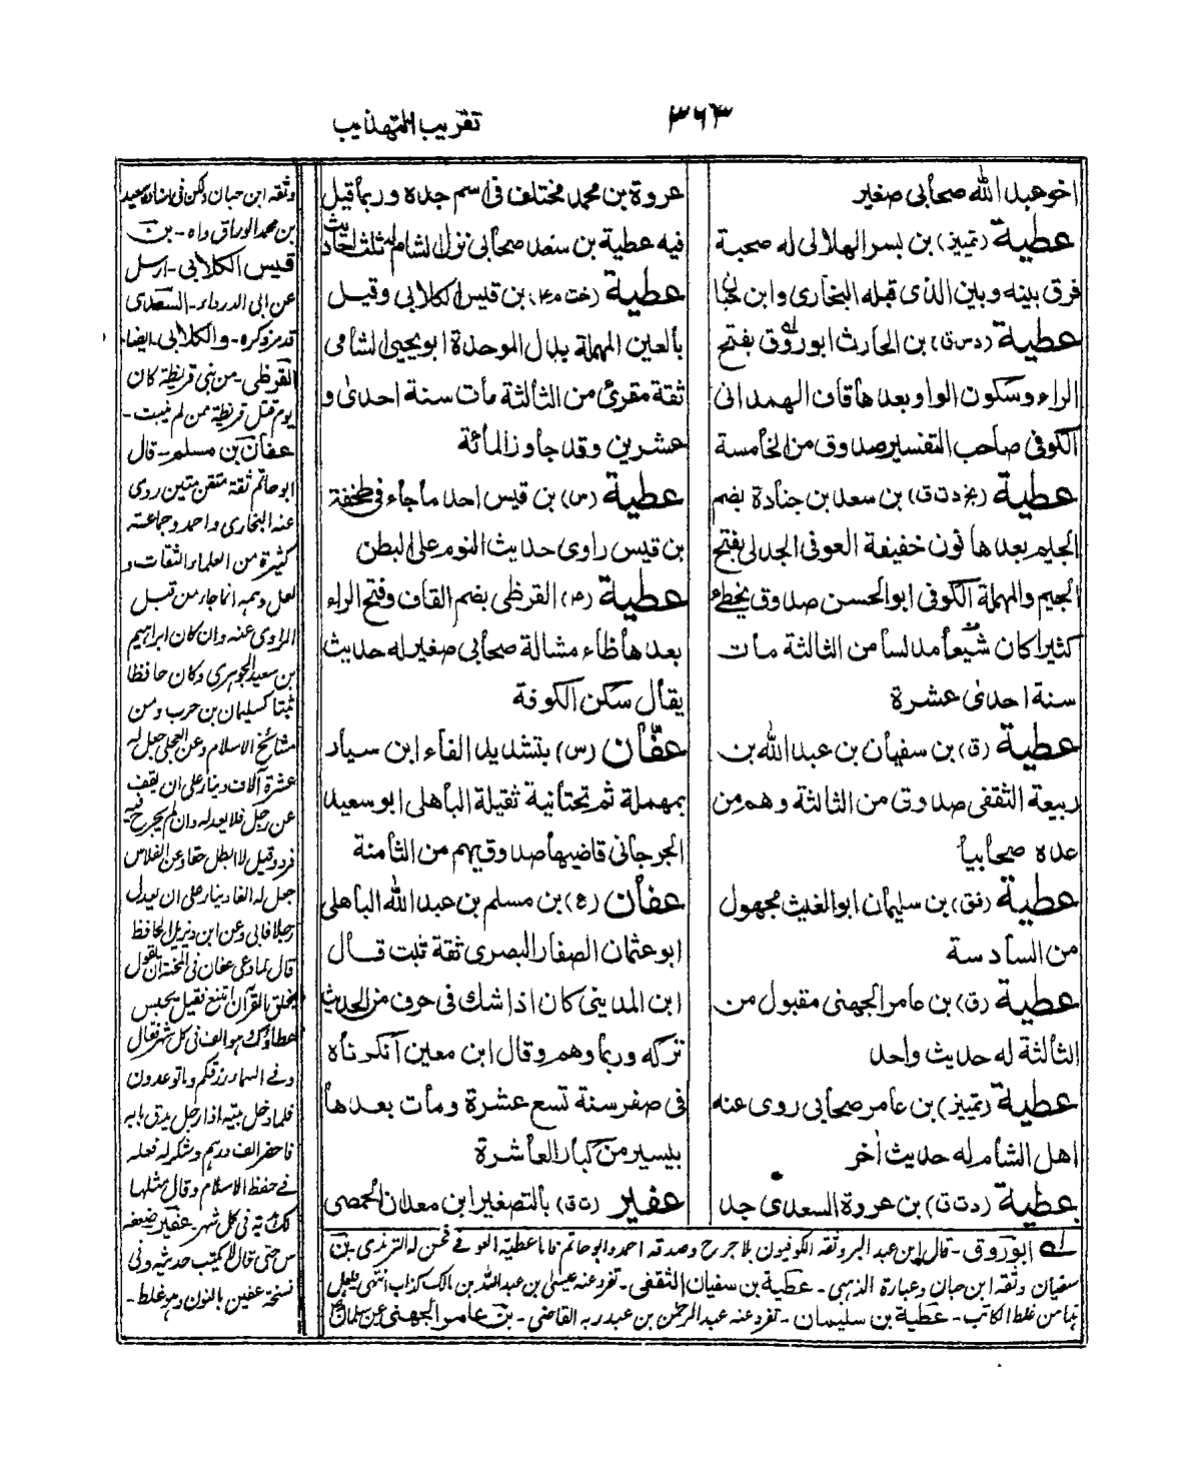 تقريب التهذيب
٣٦٣
اخو عبد الله صحابي صغير
عطية (تمييز) بن بسر الهلالي له صحبة
فرق بينه وبين الذى قبله البخارى وابن حبان
عطية (د س ق) بن الحارث ابوروق بفتح
الراء وسكون الواو بعدها قاف الهمداني
الكوفي صاحب التفسير صدوق من الخامسة
عطية (بخ د ت ق) بن سعد بن جنادة بضم
الجيم بعدها نون خفيفة العوفى الجدلى بفتح
الجيم والمهملة الكوفي ابو الحسن صدوق يخطئ
كثيرا كان شيعيا مدلسا من الثالثة مات
سنة احدى عشرة
عطية (ق) بن سفيان بن عبد الله بن
ربيعة الثقفى صدوق من الثالثة وهم من
عده صحابيا
عطية (فق) بن سليمان ابو الغيث مجهول
من السادسة
عطية (ق) بن عامر الجهنى مقبول من
الثالثة له حديث واحد
عطية (تمييز) بن عامر صحابى روى عنه
اهل الشام له حديث أخر
عطية (د ت ق) بن عروة السعدى جد
عروة بن محمد مختلف فى اسم جده وربما قيل
فيه عطية بن سعد صحابى نزل الشام له ثلث احاديث
عطية (خت م ٤) بن قيس الكلابي وقيل
بالعين المهملة بدل الموحدة ابو يحيى الشامى
ثقة مقرئ من الثالثة مات سنة احدى و
عشرين وقد جاوز المائة
عطية (س) بن قيس احد ما جاء فى طخفة
بن قيس راوى حديث النوم على البطن
عطية (٤) القرظى بضم القاف وفتح الراء
بعدها ظاء مشالة صحابى صغير له حديث
يقال سكن الكوفة
عفّان (س) بتشديد الفاء ابن سيار
بمهملة ثم تحتانية ثقيلة الباهلى ابو سعيد
الجرجانى قاضيها صدوق يهم من الثامنة
عفان (ع) بن مسلم بن عبد الله الباهلى
ابو عثمان الصفار البصرى ثقة ثبت قال
ابن المدينى كان اذا شك فى حرف من الحديث
تركه وربما وهم وقال ابن معين أنكرناه
فى صفر سنة تسع عشرة ومات بعدها
بيسير من كبار العاشرة
عفير (ت ق) بالتصغير ابن معدان الحمصى
وثقه ابن حبان ولكن فى اسناده سعيد
بن محمد الوراق واه - بن
قيس الكلابي - ارسل
عن ابى الدرداء - السعدى
قد مر ذكره - والكلابى ايضا
القرظى - من بنى قريظة كان
يوم قتل قريظة ممن لم ينبت -
عفان بن مسلم - قال
ابو حاتم ثقة متقن متين روى
عنه البخارى واحمد وجماعة
كثيرة من العلماء الثقات و
لعل وهمه انما جاء من قبل
الراوى عنه وان كان ابراهيم
بن سعيد الجوهرى وكان حافظا
ثبتا كسليمان بن حرب ومن
مشائخ الاسلام وعن العجلى جعل له
عشرة آلاف دينار على ان يقف
عن رجل فلا يعدله وان لم يجرح فيه
فرد وقيل لا ابطل حقا وعن الفلاس
جعل له الفا دينار على ان يعدل
رجلا فابى وعن ابن ديزيل الحافظ
قال لما دعى عفان فى المحنة ان يقول
بخلق القرآن امتنع فقيل يحبس
عطاؤك وهو الف فى كل شهر فقال
وفى السماء رزقكم وما توعدون
فلما دخل بيته اذا رجل يدق بابه
فاحضر الف درهم وشكر له فعله
فى حفظ الاسلام وقال مثلها
لك فى كل شهر - عفير ضعفه
س حتى قال لا يكتب حديثه وفى
نسخة عفين بالنون وهو غلط -
له ابوروق - قال ابن عبد البر وثقه الكوفيون بلا جرح وصدقه احمد وابو حاتم فاما عطية العوفى فحسن له الترمذى - بن
سفيان وثقه ابن حبان وعبارة الذهبى - عطية بن سفيان الثقفى - تفرد عنه عيسى بن عبد الله بن مالك كذاب انتهى ولعل
هذا من غلط الكاتب - عطية بن سليمان - تفرد عنه عبد الرحمن بن عبد ربه القاضى - بن عامر الجهنى عن سلمان